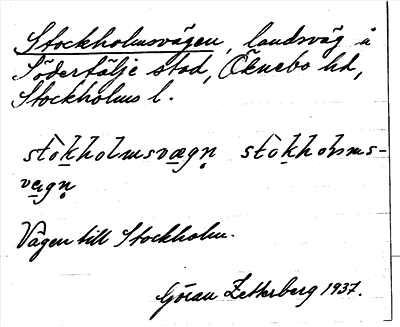 Stockholmsvägen, landsväg å
Södertälje stad, Öknebo hd,
Stockholms l.
stòkholmsvægn̥ stòkholms-
vægn̥
Vägen till Stockholm.
Göran Zetterberg 1937.